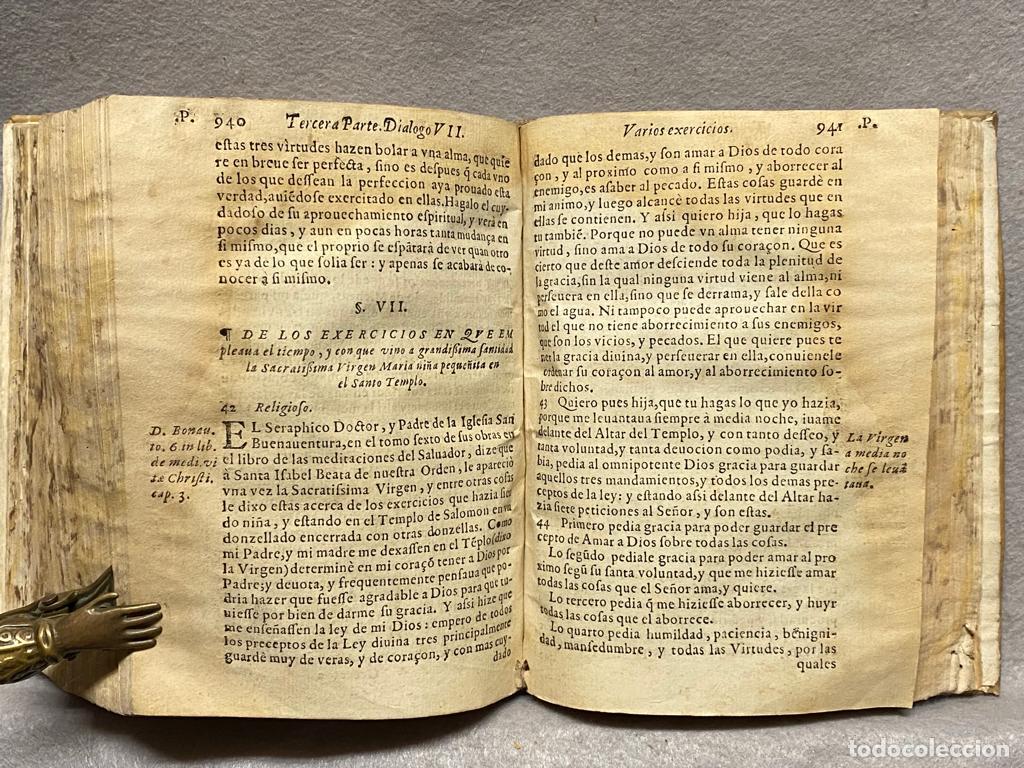 .P. 940 Tercera Parte. Dialogo VII.
estas tres virtudes hazen bolar a vna alma, que quie
re en breue ser perfecta, sino es despues q̃ cada vno
de los que dessean la perfeccion aya prouado esta
verdad, auiẽdose exercitado en ellas. Hagalo el cuy-
dadoso de su aprouechamiento espiritual, y verà en
pocos dias, y aun en pocas horas tanta mudança en
si mismo, que el proprio se espãtarà de ver quan otro
es ya de lo que solia ser: y apenas se acabarà de co-
nocer à si mismo.
§. VII.
¶ DE LOS EXERCICIOS EN QVE EM
pleaua el tiempo, y con que vino a grandissima santidad
la Sacratissima Virgen Maria niña pequeñita en
el Santo Templo.
42 Religioso.
EL Seraphico Doctor, y Padre de la Iglesia San
Buenauentura, en el tomo sexto de sus obras en
el libro de las meditaciones del Saluador, dize que
à Santa Isabel Beata de nuestra Orden, le apareciò
vna vez la Sacratissima Virgen, y entre otras cosas
le dixo estas acerca de los exercicios que hazia siẽ
do niña, y estando en el Templo de Salomon en vn
donzellado encerrada con otras donzellas. Como
mi Padre, y mi madre me dexassen en el Tẽplo (dixo
la Virgen) determinè en mi coraçõ tener a Dios por
Padre; y deuota, y frequentemente pensaua que po-
dria hazer que fuesse agradable a Dios para que tu-
uiesse por bien de darme su gracia. Y assi hize que
me enseñassen la ley de mi Dios: empero de todos
los preceptos de la Ley diuina tres principalmente
guardè muy de veras, y de coraçon, y con mas cuy-
dado
D. Bonau.
to. 6. in lib.
de medi. vi
tæ Christi.
cap. 3.
Varios exercicios. 941 .P.
dado que los demas, y son amar a Dios de todo cora
çon, y al proximo como a si mismo, y aborrecer al
enemigo, es asaber al pecado. Estas cosas guardè en
mi animo, y luego alcancè todas las virtudes que en
ellas se contienen. Y assi quiero hija, que lo hagas
tu tambiẽ. Porque no puede vn alma tener ninguna
virtud, sino ama a Dios de todo su coraçon. Que es
cierto que deste amor desciende toda la plenitud de
la gracia, sin la qual ninguna virtud viene al alma, ni
perseuera en ella, sino que se derrama, y sale della co
mo el agua. Ni tampoco puede aprouechar en la vir
tud el que no tiene aborrecimiento a sus enemigos,
que son los vicios, y pecados. El que quiere pues te
ner la gracia diuina, y perseuerar en ella, conuienele
ordenar su coraçon al amor, y al aborrecimiento so-
bredichos.
43 Quiero pues hija, que tu hagas lo que yo hazia,
porque me leuantaua siempre à media noche, iuame
delante del Altar del Templo, y con tanto desseo, y
tanta voluntad, y tanta deuocion como podia, y sa-
bia, pedia al omnipotente Dios gracia para guardar
aquellos tres mandamientos, y todos los demas pre-
ceptos de la ley: y estando assi delante del Altar ha-
zia siete peticiones al Señor, y son estas.
44 Primero pedia gracia para poder guardar el pre
cepto de Amar a Dios sobre todas las cosas.
Lo segũdo pediale gracia para poder amar al pro
ximo segũ su santa voluntad, y que me hiziesse amar
todas las cosas que el Señor ama, y quiere.
Lo tercero pedia q̃ me hiziesse aborrecer, y huyr
todas las cosas que el aborrece.
Lo quarto pedia humildad, paciencia, benigni-
dad, mansedumbre, y todas las Virtudes, por las
quales
La Virgen
a media no
che se leuã
taua.
todocoleccion